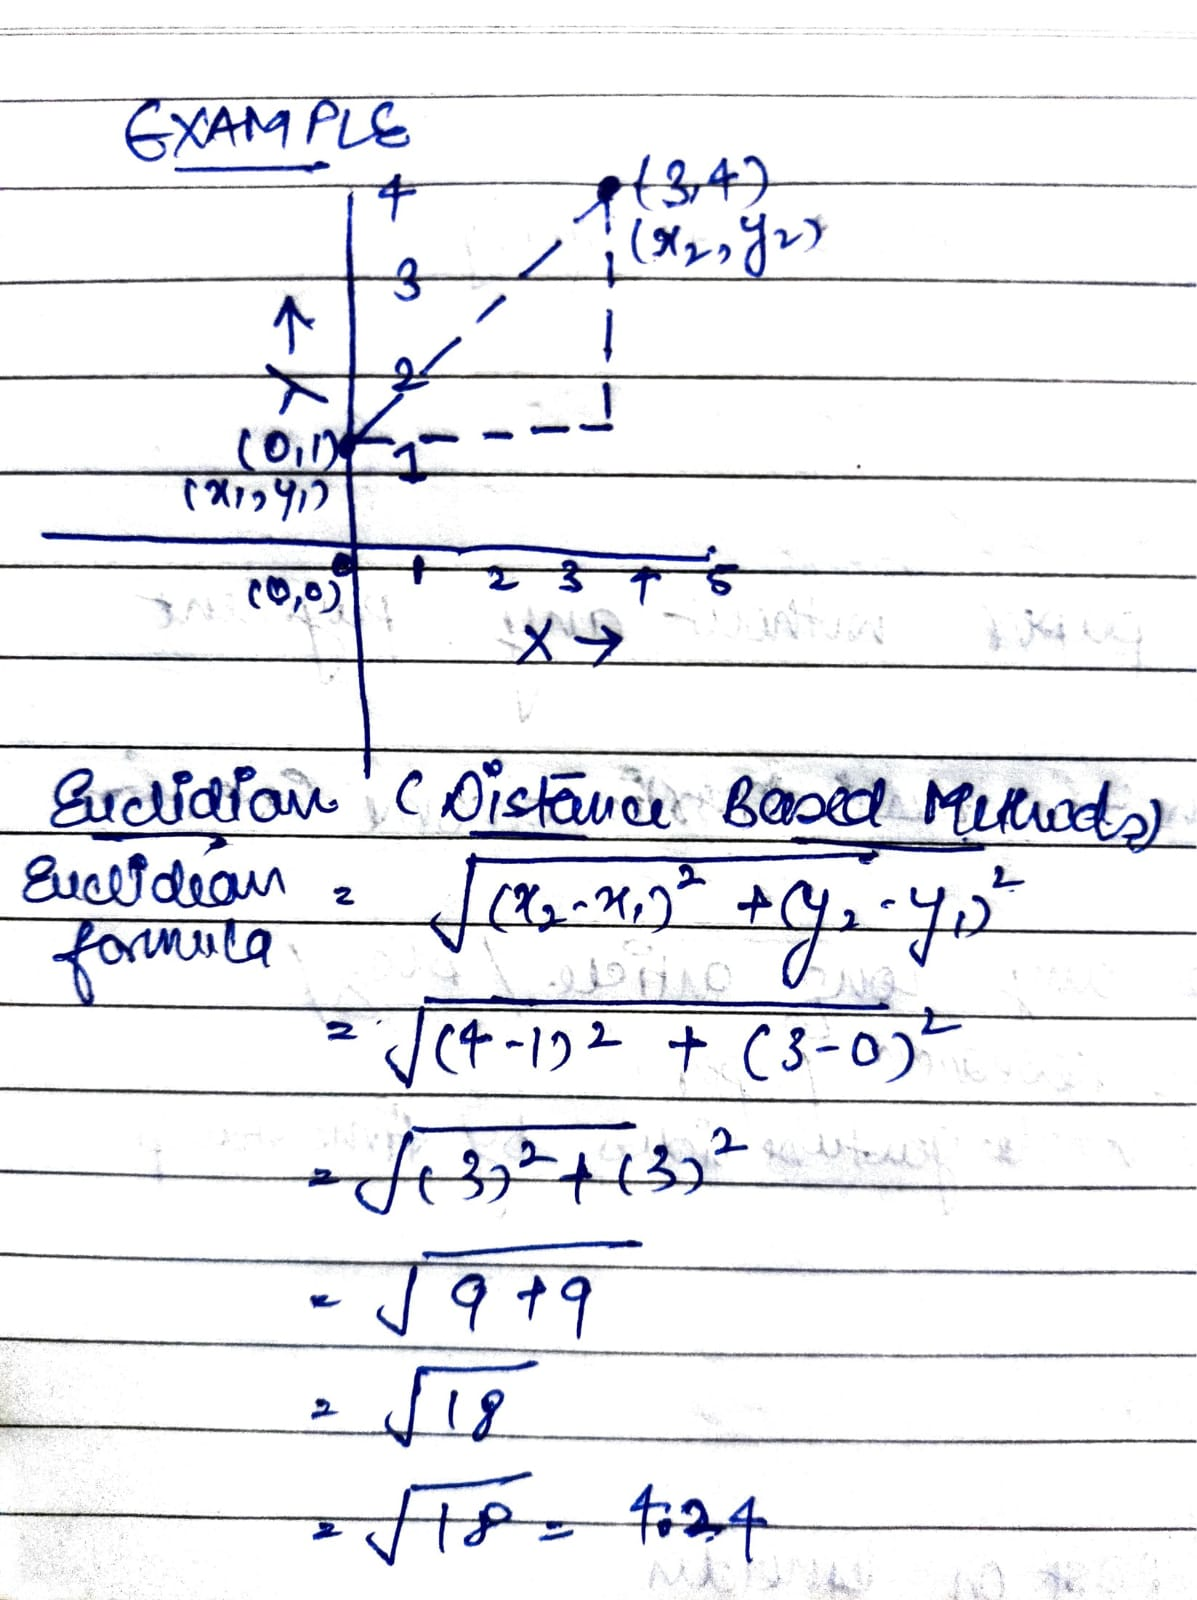 EXAMPLE
4 (3,4)
(x₂, y₂)
3
↑
2
Y
(0,1) 1
(x₁, y₁)
(0,0) 1 2 3 4 5
X →
Euclidian (Distance Based Methods)
Euclidean formula = √(x₂-x₁)² + (y₂-y₁)²
= √(4-1)² + (3-0)²
= √(3)² + (3)²
= √9+9
= √18
= √18 = 4.24